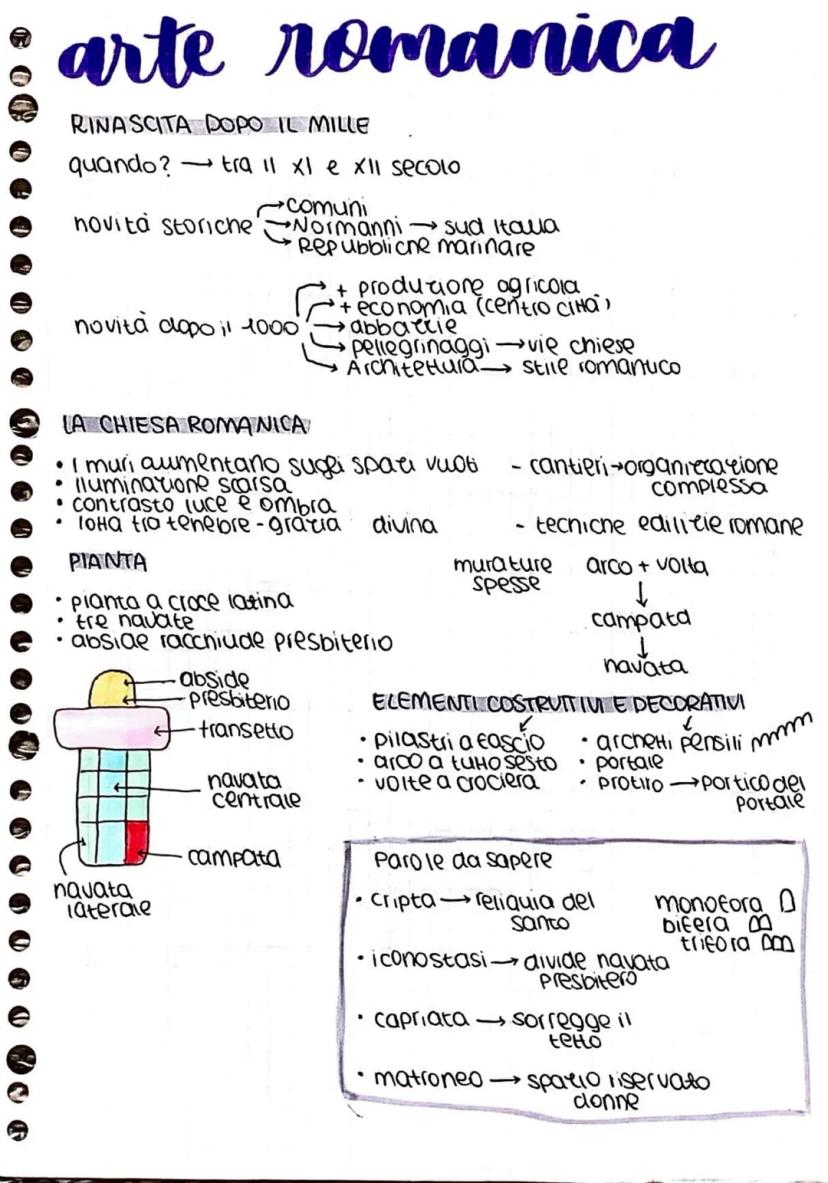 arte romanica
RINASCITA DOPO IL MILLE
quando? → tra il XI e XII secolo
novità storiche → comuni
→ Normanni → sud Italia
→ Repubbliche marinare
novità dopo il 1000 → + produzione agricola
→ + economia (centro città)
→ abbazzie
→ pellegrinaggi → vie chiese
→ Architettura → stile romantico
LA CHIESA ROMANICA
• I muri aumentano sugli spazi vuoti
• illuminazione scarsa
• contrasto luce e ombra
• lotta tra tenebre - grazia divina
- cantieri → organizzazione
complessa
- tecniche edilizie romane
murature
spesse
arco + volta
↓
campata
↓
navata
PIANTA
• pianta a croce latina
• tre navate
• abside racchiude presbiterio
abside
presbiterio
transetto
navata
centrale
campata
navata
laterale
ELEMENTI COSTRUTTIVI E DECORATIVI
• pilastri a fascio
• arco a tutto sesto
• volte a crociera
• archetti pensili
• portale
• protiro → portico del
portale
Parole da sapere
• cripta → reliquia del
santo
• iconostasi → divide navata
presbitero
• capriata → sorregge il
tetto
• matroneo → spazio riservato
donne
monofora
bifera
trifora